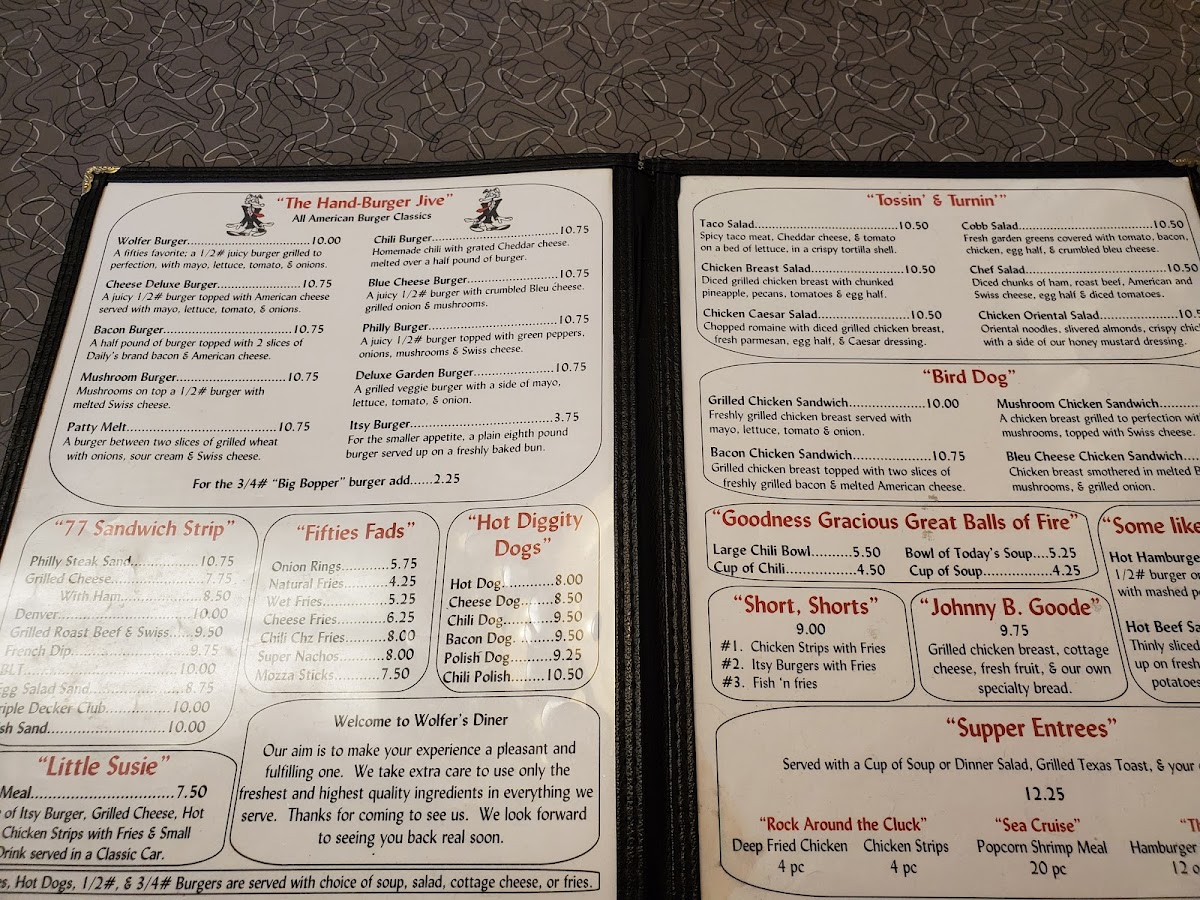 "The Hand-Burger Jive"
All American Burger Classics
Wolfer Burger..............................10.00
A fifties favorite; a 1/2# juicy burger grilled to
perfection, with mayo, lettuce, tomato, & onions.
Cheese Deluxe Burger......................10.75
A juicy 1/2# burger topped with American cheese
served with mayo, lettuce, tomato, & onions.
Bacon Burger...............................10.75
A half pound of burger topped with 2 slices of
Daily's brand bacon & American cheese.
Mushroom Burger.........................10.75
Mushrooms on top a 1/2# burger with
melted Swiss cheese.
Patty Melt...................................10.75
A burger between two slices of grilled wheat
with onions, sour cream & Swiss cheese.
Chili Burger...............................10.75
Homemade chili with grated Cheddar cheese.
melted over a half pound of burger.
Blue Cheese Burger......................10.75
A juicy 1/2# burger with crumbled Bleu cheese.
grilled onion & mushrooms.
Philly Burger...............................10.75
A juicy 1/2# burger topped with green peppers,
onions, mushrooms & Swiss cheese.
Deluxe Garden Burger...................10.75
A grilled veggie burger with a side of mayo,
lettuce, tomato, & onion.
Itsy Burger...................................3.75
For the smaller appetite, a plain eighth pound
burger served up on a freshly baked bun.
For the 3/4# "Big Bopper" burger add......2.25
"77 Sandwich Strip"
Philly Steak Sand..............10.75
Grilled Cheese..................7.75
With Ham................8.50
Denver...........................10.00
Grilled Roast Beef & Swiss.....9.50
French Dip.......................9.75
BLT..............................10.00
Egg Salad Sand...................8.75
Triple Decker Club..............10.00
Sand.........................10.00
"Fifties Fads"
Onion Rings...........5.75
Natural Fries..........4.25
Wet Fries...............5.25
Cheese Fries...........6.25
Chili Chz Fries........8.00
Super Nachos..........8.00
Mozza Sticks..........7.50
"Hot Diggity
Dogs"
Hot Dog...........8.00
Cheese Dog.......8.50
Chili Dog..........9.50
Bacon Dog.........9.50
Polish Dog.........9.25
Chili Polish.......10.50
"Little Susie"
Meal............................7.50
of Itsy Burger, Grilled Cheese, Hot
Chicken Strips with Fries & Small
Drink served in a Classic Car.
Welcome to Wolfer's Diner
Our aim is to make your experience a pleasant and
fulfilling one. We take extra care to use only the
freshest and highest quality ingredients in everything we
serve. Thanks for coming to see us. We look forward
to seeing you back real soon.
Hot Dogs, 1/2#, & 3/4# Burgers are served with choice of soup, salad, cottage cheese, or fries.
"Tossin' & Turnin'"
Taco Salad...............................10.50
Spicy taco meat, Cheddar cheese, & tomato
on a bed of lettuce, in a crispy tortilla shell.
Chicken Breast Salad....................10.50
Diced grilled chicken breast with chunked
pineapple, pecans, tomatoes & egg half.
Chicken Caesar Salad....................10.50
Chopped romaine with diced grilled chicken breast,
fresh parmesan, egg half, & Caesar dressing.
Cobb Salad..............................10.50
Fresh garden greens covered with tomato, bacon,
chicken, egg half, & crumbled bleu cheese.
Chef Salad...............................10.50
Diced chunks of ham, roast beef, American and
Swiss cheese, egg half & diced tomatoes.
Chicken Oriental Salad...................10.5
Oriental noodles, slivered almonds, crispy
with a side of our honey mustard dressing.
"Bird Dog"
Grilled Chicken Sandwich...............10.00
Freshly grilled chicken breast served with
mayo, lettuce, tomato & onion.
Bacon Chicken Sandwich................10.75
Grilled chicken breast topped with two slices of
freshly grilled bacon & melted American cheese.
Mushroom Chicken Sandwich.......
A chicken breast grilled to perfection
mushrooms, topped with Swiss cheese.
Bleu Cheese Chicken Sandwich....
Chicken breast smothered in melted
mushrooms, & grilled onion.
"Goodness Gracious Great Balls of Fire"
Large Chili Bowl..........5.50
Cup of Chili................4.50
Bowl of Today's Soup....5.25
Cup of Soup................4.25
"Some like
Hot Hamburger
1/2# burger
with mashed
Hot Beef
Thinly sliced
up on fresh
potatoes
"Short, Shorts"
9.00
#1. Chicken Strips with Fries
#2. Itsy Burgers with Fries
#3. Fish 'n fries
"Johnny B. Goode"
9.75
Grilled chicken breast, cottage
cheese, fresh fruit, & our own
specialty bread.
"Supper Entrees"
Served with a Cup of Soup or Dinner Salad, Grilled Texas Toast, & your
12.25
"Rock Around the Cluck"
Deep Fried Chicken Chicken Strips
4 pc 4 pc
"Sea Cruise"
Popcorn Shrimp Meal
20 pc
Hamburger
12